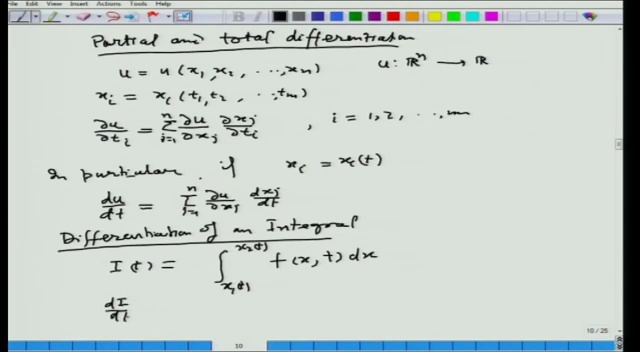 View Insert Actions Tools Help
Partial and total differentiation
u = u (x₁, x₂, ..., xₙ)    u: ℝⁿ → ℝ
xᵢ = xᵢ (t₁, t₂, ..., tₘ)
∂u/∂tᵢ = Σⁿⱼ₌₁ ∂u/∂xⱼ ∂xⱼ/∂tᵢ , i = 1, 2, ..., m
In particular, if xᵢ = xᵢ(t)
du/dt = Σⁿⱼ₌₁ ∂u/∂xⱼ dxⱼ/dt
Differentiation of an Integral
I(t) = ∫_{x₁(t)}^{x₂(t)} f(x, t) dx
dI/dt
10 / 25
10